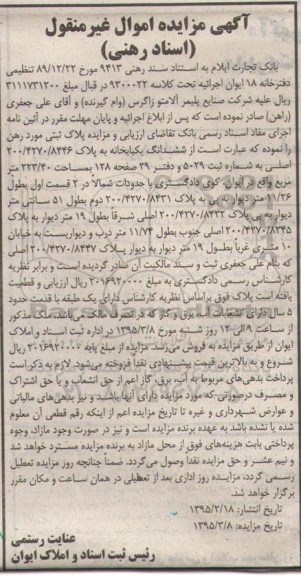 آگهی مزایده اموال غیرمنقول
(اسناد رهنی)
بانک تجارت ایلام به استناد سند رهنی ۹۴۱۳ مورخ ۸۹/۱۲/۲۲ تنظیمی
دفترخانه ۱۸ ایوان اجرائیه تحت کلاسه ۹۳۰۰۰۲۲ در قبال مبلغ ۳۱۱۱۷۳۱۲۰۰
ریال علیه شرکت صنایع پلیمر آلامتو زاگرس (وام گیرنده) و آقای علی جعفری
(راهن) صادر نموده است که پس از ابلاغ اجرائیه و پایان مهلت مقرر در آئین نامه
اجرای مفاد اسناد رسمی بانک تقاضای ارزیابی و مزایده پلاک ثبتی مورد رهن
را نموده که عبارت است از ششدانگ یکبابخانه به پلاک ۲۰۰/۴۲۷۰/۸۴۴۶
اصلی به شماره ثبت ۵۰۲۹ و دفتر ۳۹ صفحه ۱۲۸ بمساحت ۲۲۳/۴۰ متر
مربع واقع در ایوان، کوی دادگستری با حدودات شمالاً در ۲ قسمت اول بطول
۱۱/۲۶ متر دیوار به پی پلاک ۲۰۰/۴۲۷۰/۸۴۳۱ دوم بطول ۵۱ سانتی متر
دیوار به پی پلاک ۲۰۰/۴۲۷۰/۸۴۳۲ اصلی شرقاً بطول ۱۹ متر دیوار به پلاک
۲۰۰/۴۲۷۰/۸۴۴۵ اصلی جنوب بطول ۱۱/۷۴ متر درب و دیواریست به خیابان
۱۰ متری غرباً بطول ۱۹ متر دیوار به دیوار پلاک ۲۰۰/۴۲۷۰/۸۴۴۷ اصلی
که بنام علی جعفری ثبت و سند مالکیت آن صادر گردیده است و برابر نظریه
کارشناس رسمی دادگستری به مبلغ ۲۰۱۶۹۲۰۰۰۰ ریال ارزیابی و قطعیت
یافته است پلاک فوق براساس نظریه کارشناس دارای یک طبقه با قدمت حدود
۵ سال دارای انشعابات آب، برق و گاز که در تصرف مالک می‌باشد. ملک مذکور
از ساعت ۹ الی ۱۲ روز شنبه مورخ ۱۳۹۵/۳/۸ در اداره ثبت اسناد و املاک
ایوان از طریق مزایده به فروش می‌رسد. مزایده از مبلغ پایه ۲۰۱۶۹۲۰۰۰۰ ریال
شروع و به بالاترین قیمت پیشنهادی نقداً فروخته می‌شود. لازم به ذکر است
پرداخت بدهی‌های مربوط به آب، برق، گاز اعم از حق انشعاب و یا حق اشتراک
و مصرف درصورتی که مورد مزایده دارای آنها باشد و نیز بدهی‌های مالیاتی
و عوارض شهرداری و غیره تا تاریخ مزایده اعم از اینکه رقم قطعی آن معلوم
شده یا نشده باشد به عهده برنده مزایده است و نیز در صورت وجود مازاد، وجوه
پرداختی بابت هزینه‌های فوق از محل مازاد به برنده مزایده مسترد خواهد شد
و نیم عشر و حق مزایده نقداً وصول می‌گردد. ضمناً چنانچه روز مزایده تعطیل
رسمی گردد، مزایده روز اداری بعد از تعطیلی در همان ساعت و مکان مقرر
برگزار خواهد شد.
تاریخ انتشار: ۱۳۹۵/۲/۱۸
تاریخ مزایده: ۱۳۹۵/۳/۸
عنایت رستمی
رئیس ثبت اسناد و املاک ایوان